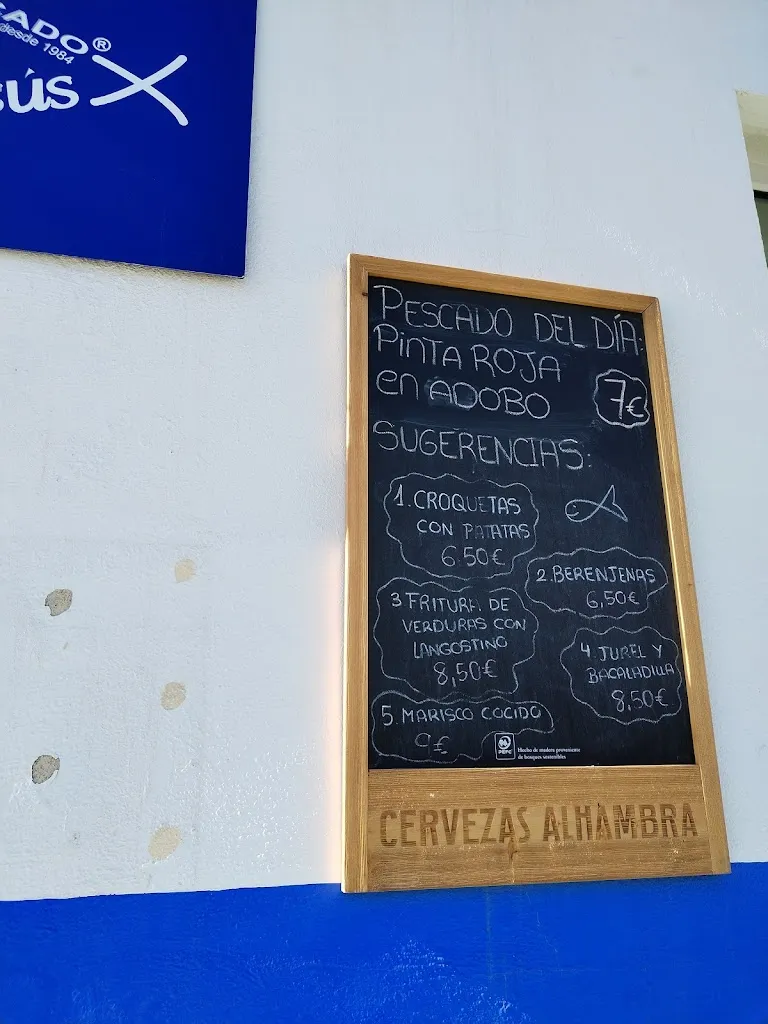 desde 1984
PESCADO DEL DÍA:
PINTA ROJA
en ADOBO
7€
SUGERENCIAS:
1. CROQUETAS
CON PATATAS
6.50€
2. BERENJENAS
6,50€
3 FRITURA DE
VERDURAS CON
LANGOSTINO
8,50€
4 JUREL Y
BACALADILLA
8,50€
5. MARISCO COCIDO
9€
PEFC
Hecho de madera proveniente
de bosques sostenibles
CERVEZAS ALHAMBRA